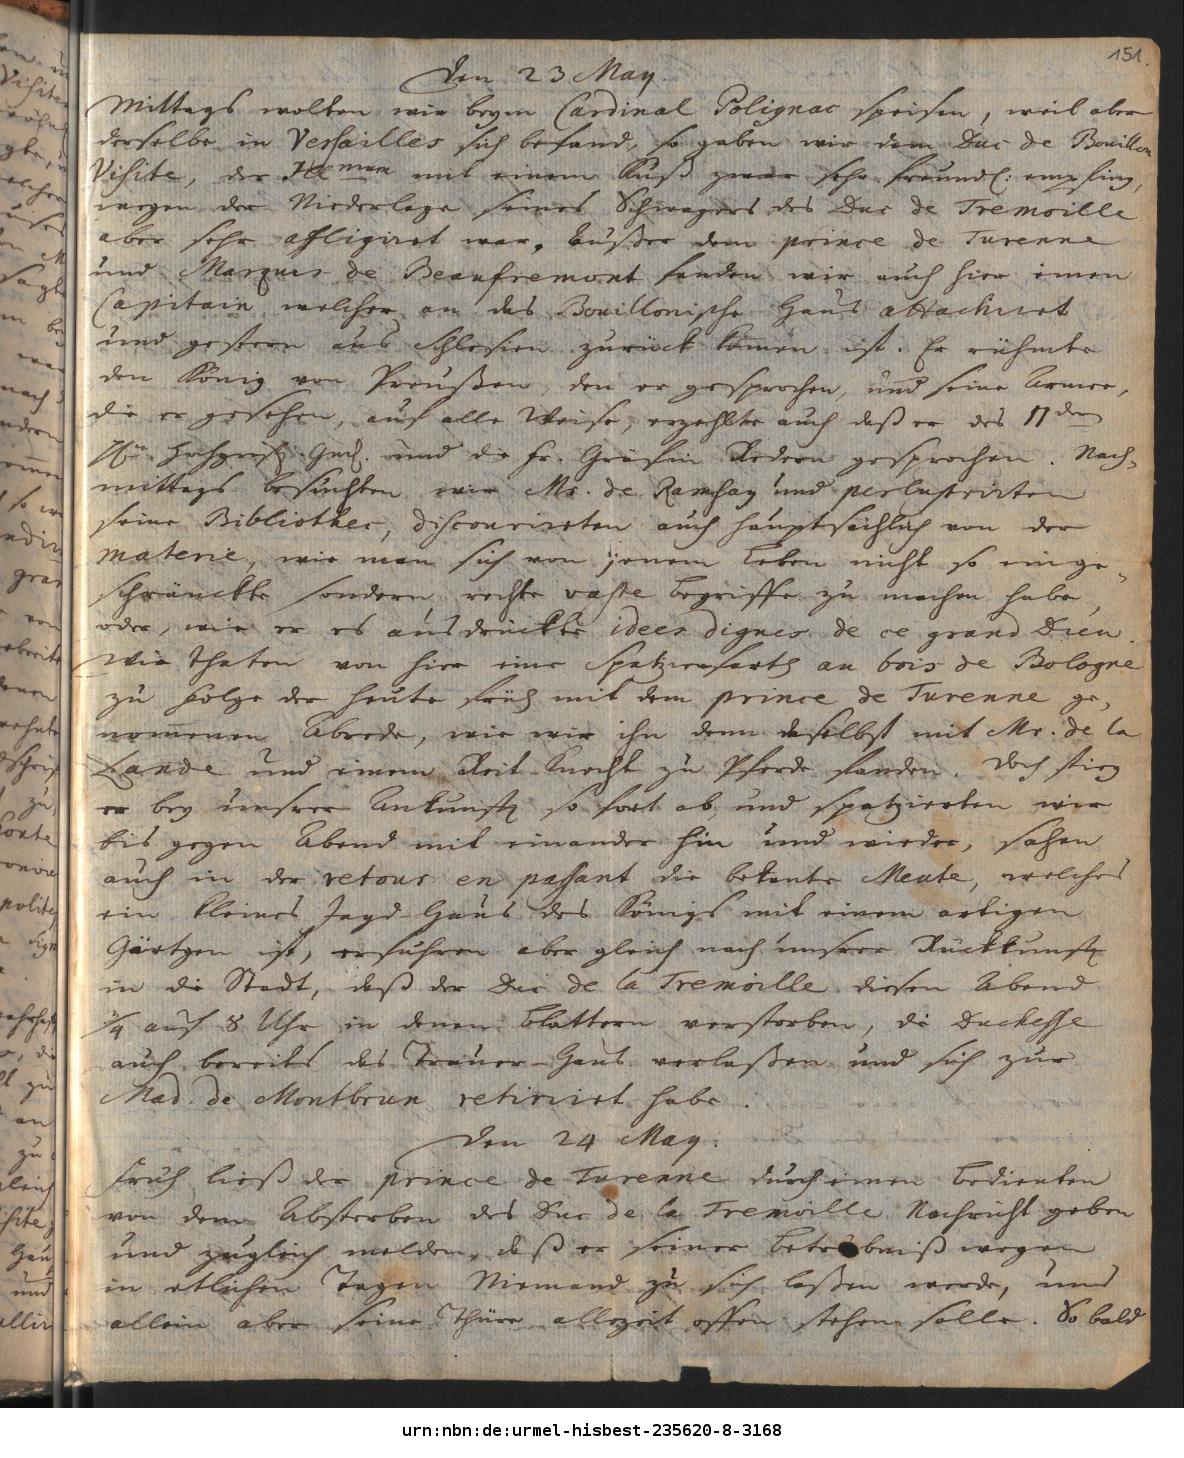 151.
Den 23 May.
Mittags wolten wir beym Cardinal Polignac speisen, weil aber
derselbe in Versailles sich befand, so gaben wir dem Duc de Bouillon
Visite, der mit einem Kuß zwar sehr freundl: empfing,
wegen der Niederlage seines Schwagers des Duc de Tremoille
aber sehr affligiret war. Außer dem prince de Turenne
und Marquis de Beaufremont fanden wir auch hier einen
Capitain welcher an das Bouillonische Haus attachiret
und gestern aus Schlesien zurück kom̄en ist. Er rühmte
den König von Preußen, den er gesprochen, und seine Armee,
die er gesehen, auf alle Weise, erzehlte auch daß er des 11den
und die fr. Gräfin Redern gesprochen. Nach-
mittags besuchten wir Mr. de Ramsay und perlustrirten
seine Bibliothec, discourireten auch hauptsächlich von der
materie, wie man sich von jenem Leben nicht so einge-
schränckte sondern recht vaste begriffe zu machen habe,
oder, wie er es ausdrückte idees dignes de ce grand Dieu.
Wir thaten von hier eine Spatzierfarth au bois de Bologne
zu folge der heute früh mit dem prince de Turenne ge-
nom̄enen Abrede, wie wir ihn denn daselbst mit Mr. de la
Lande und einem Reit-Knecht zu Pferde fanden. Doch stieg
er bey unsrer Ankunft so fort ab, und spatzierten wir
bis gegen Abend mit einander hin und wieder, sahen
auch in der retour en passant die bekante Meute, welches
ein kleines Jagd-Haus des Königs mit einem artigen
Gärtgen ist, erfuhren aber gleich nach unsrer Rückkunft
in die Stadt, daß der Duc de la Tremoille diesen Abend
3/4 auf 8 Uhr in denen Blattern verstorben, die Duchesse
auch bereits das Trauer-Haus verlaßen und sich zur
Mad. de Montbrun retiriret habe.
Den 24 May.
Früh ließ der prince de Turenne durch einen bedienten
von dem Absterben des Duc de la Tremoille Nachricht geben
und zugleich melden, daß er seiner betrübniß wegen
in etlichen Tagen Niemand zu sich laßen werde, uns
allein aber seine Thüre allezeit offen stehen solle. So bald
urn:nbn:de:urmel-hisbest-235620-8-3168